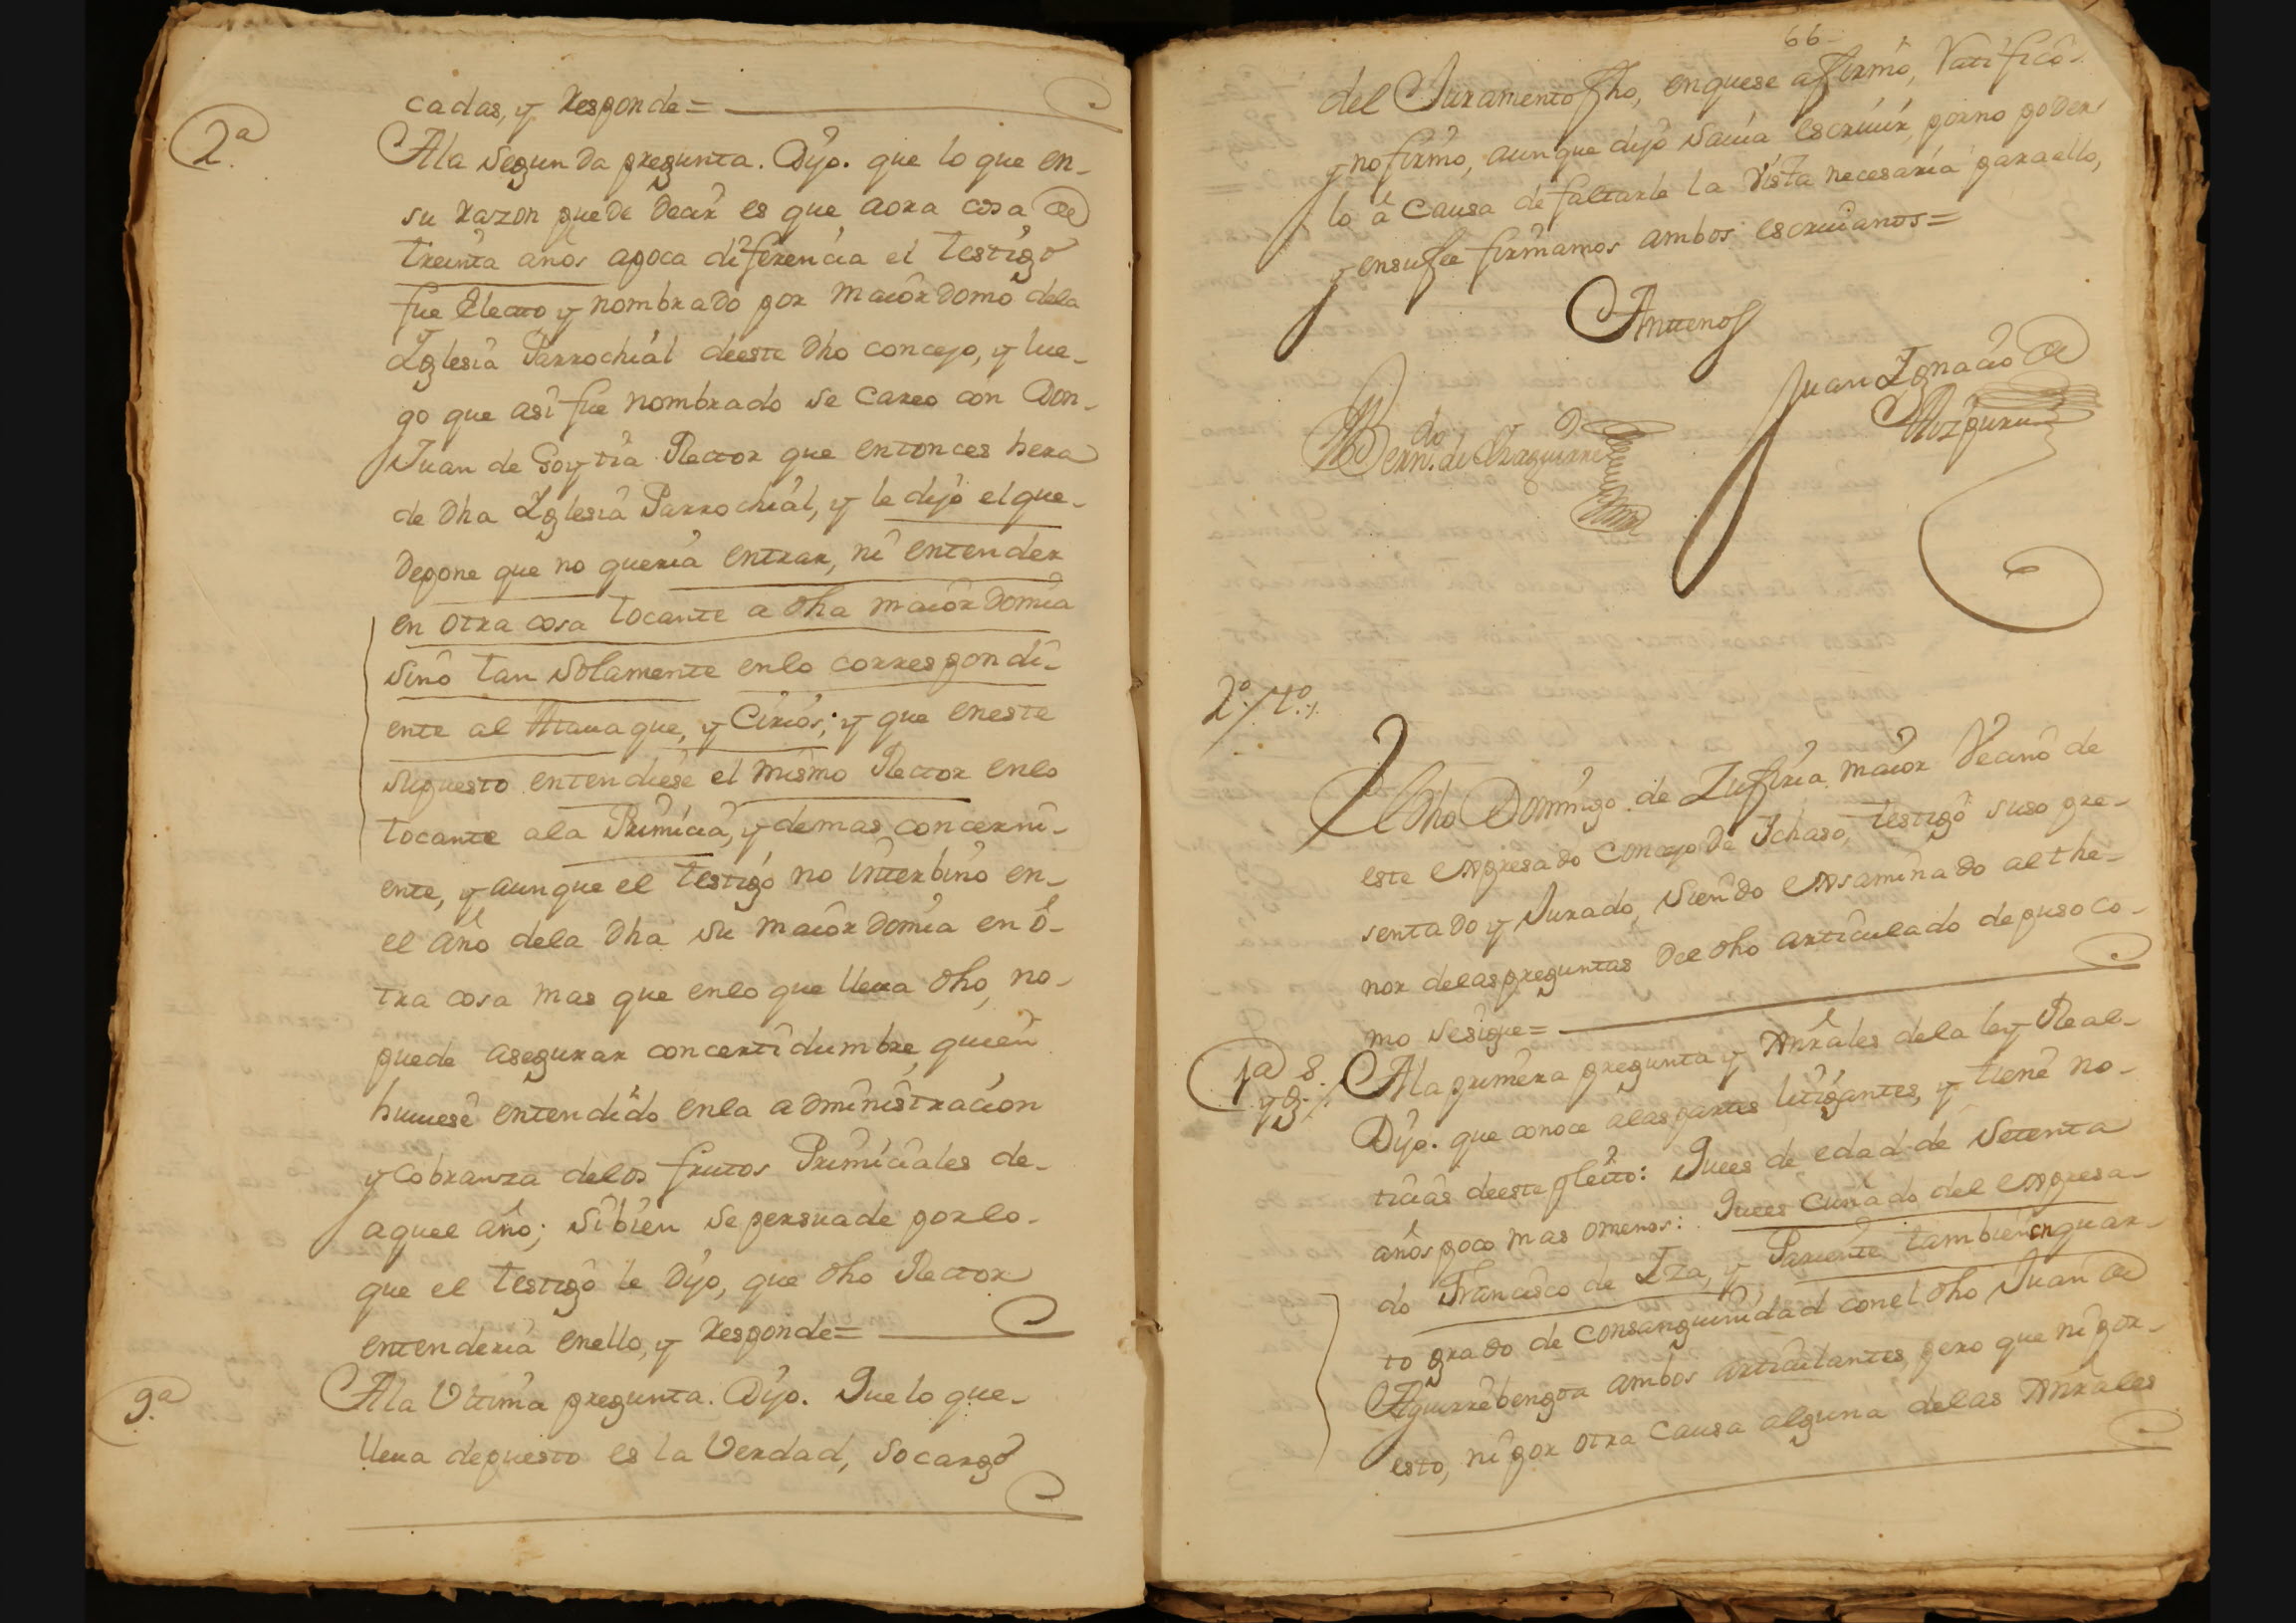 cadas, y Responde=
2ª
A la Segunda pregunta. Dijo. que lo que en-
su razon puede decir es que aora cosa de
treinta años apoca diferencia el testigo
fue Electo y nombrado por maiordomo dela
Iglesia Parrochial deeste dho concejo, y lue-
go que asi fue nombrado se careo con Don-
Juan de Goytia Rector que entonces hera
de dha Iglesia Parrochial, y le dijo el que-
depone que no queria entrar, ni entender
en otra cosa tocante a dha maiordomia
sino tan solamente enlo correspondi-
ente al Atauaque, y Cirios; y que eneste
supuesto entendiese el mismo Rector enlo
tocante ala Primicia, y demas concerni-
ente, y aunque el testigo no interbino en-
el año dela dha su maiordomia en ô-
tra cosa mas que enlo que lleua dho, no-
puede asegurar concertidumbre, quien
huuiese entendido enla administracion
y Cobranza delos frutos Primiciales de-
aquel año; sibien se persuade porlo-
que el testigo le Dijo, que dho Rector
entenderia enello, y Responde=
9ª
A la Vltima pregunta. Dijo. Que lo que-
lleua depuesto es la Verdad, socargo
66
del Juramento fho, enquese afirmô, Ratificô
y no firmo, aunque dijo Sauia escriuir, porno poder
lo â Causa de faltarle la Vista necesaria paraello,
y ensufee firmamos ambos escriuanos=
Antenos
Juan Ignacio de
Bern.do de Yraguirre
Aozpuru
2º. / tº. /.
El dho Domingo de Zufiria maior Vecino de
este expresado concejo de Ichaso, testigo suso pre-
sentado y Jurado, siendo exsaminado al the-
nor delaspreguntas del dho articulado depuso co-
mo sesigue=
1ª 8.
y g. /.
A la primera pregunta y Gnrâles dela ley Real-
Dijo. que conoce alaspartes litigantes, y tiene no-
ticias deeste pleito: Ques de edad de Setenta
años poco mas omenos: Ques Cuñado del expresa-
do Francisco de Iza, y Pariente tambien enquar-
to grado de consanguinidad conel dho Juan de
Aguirrebengoa ambos articulantes, pero que ni por-
esto, ni por otra causa alguna delas Gnrâles